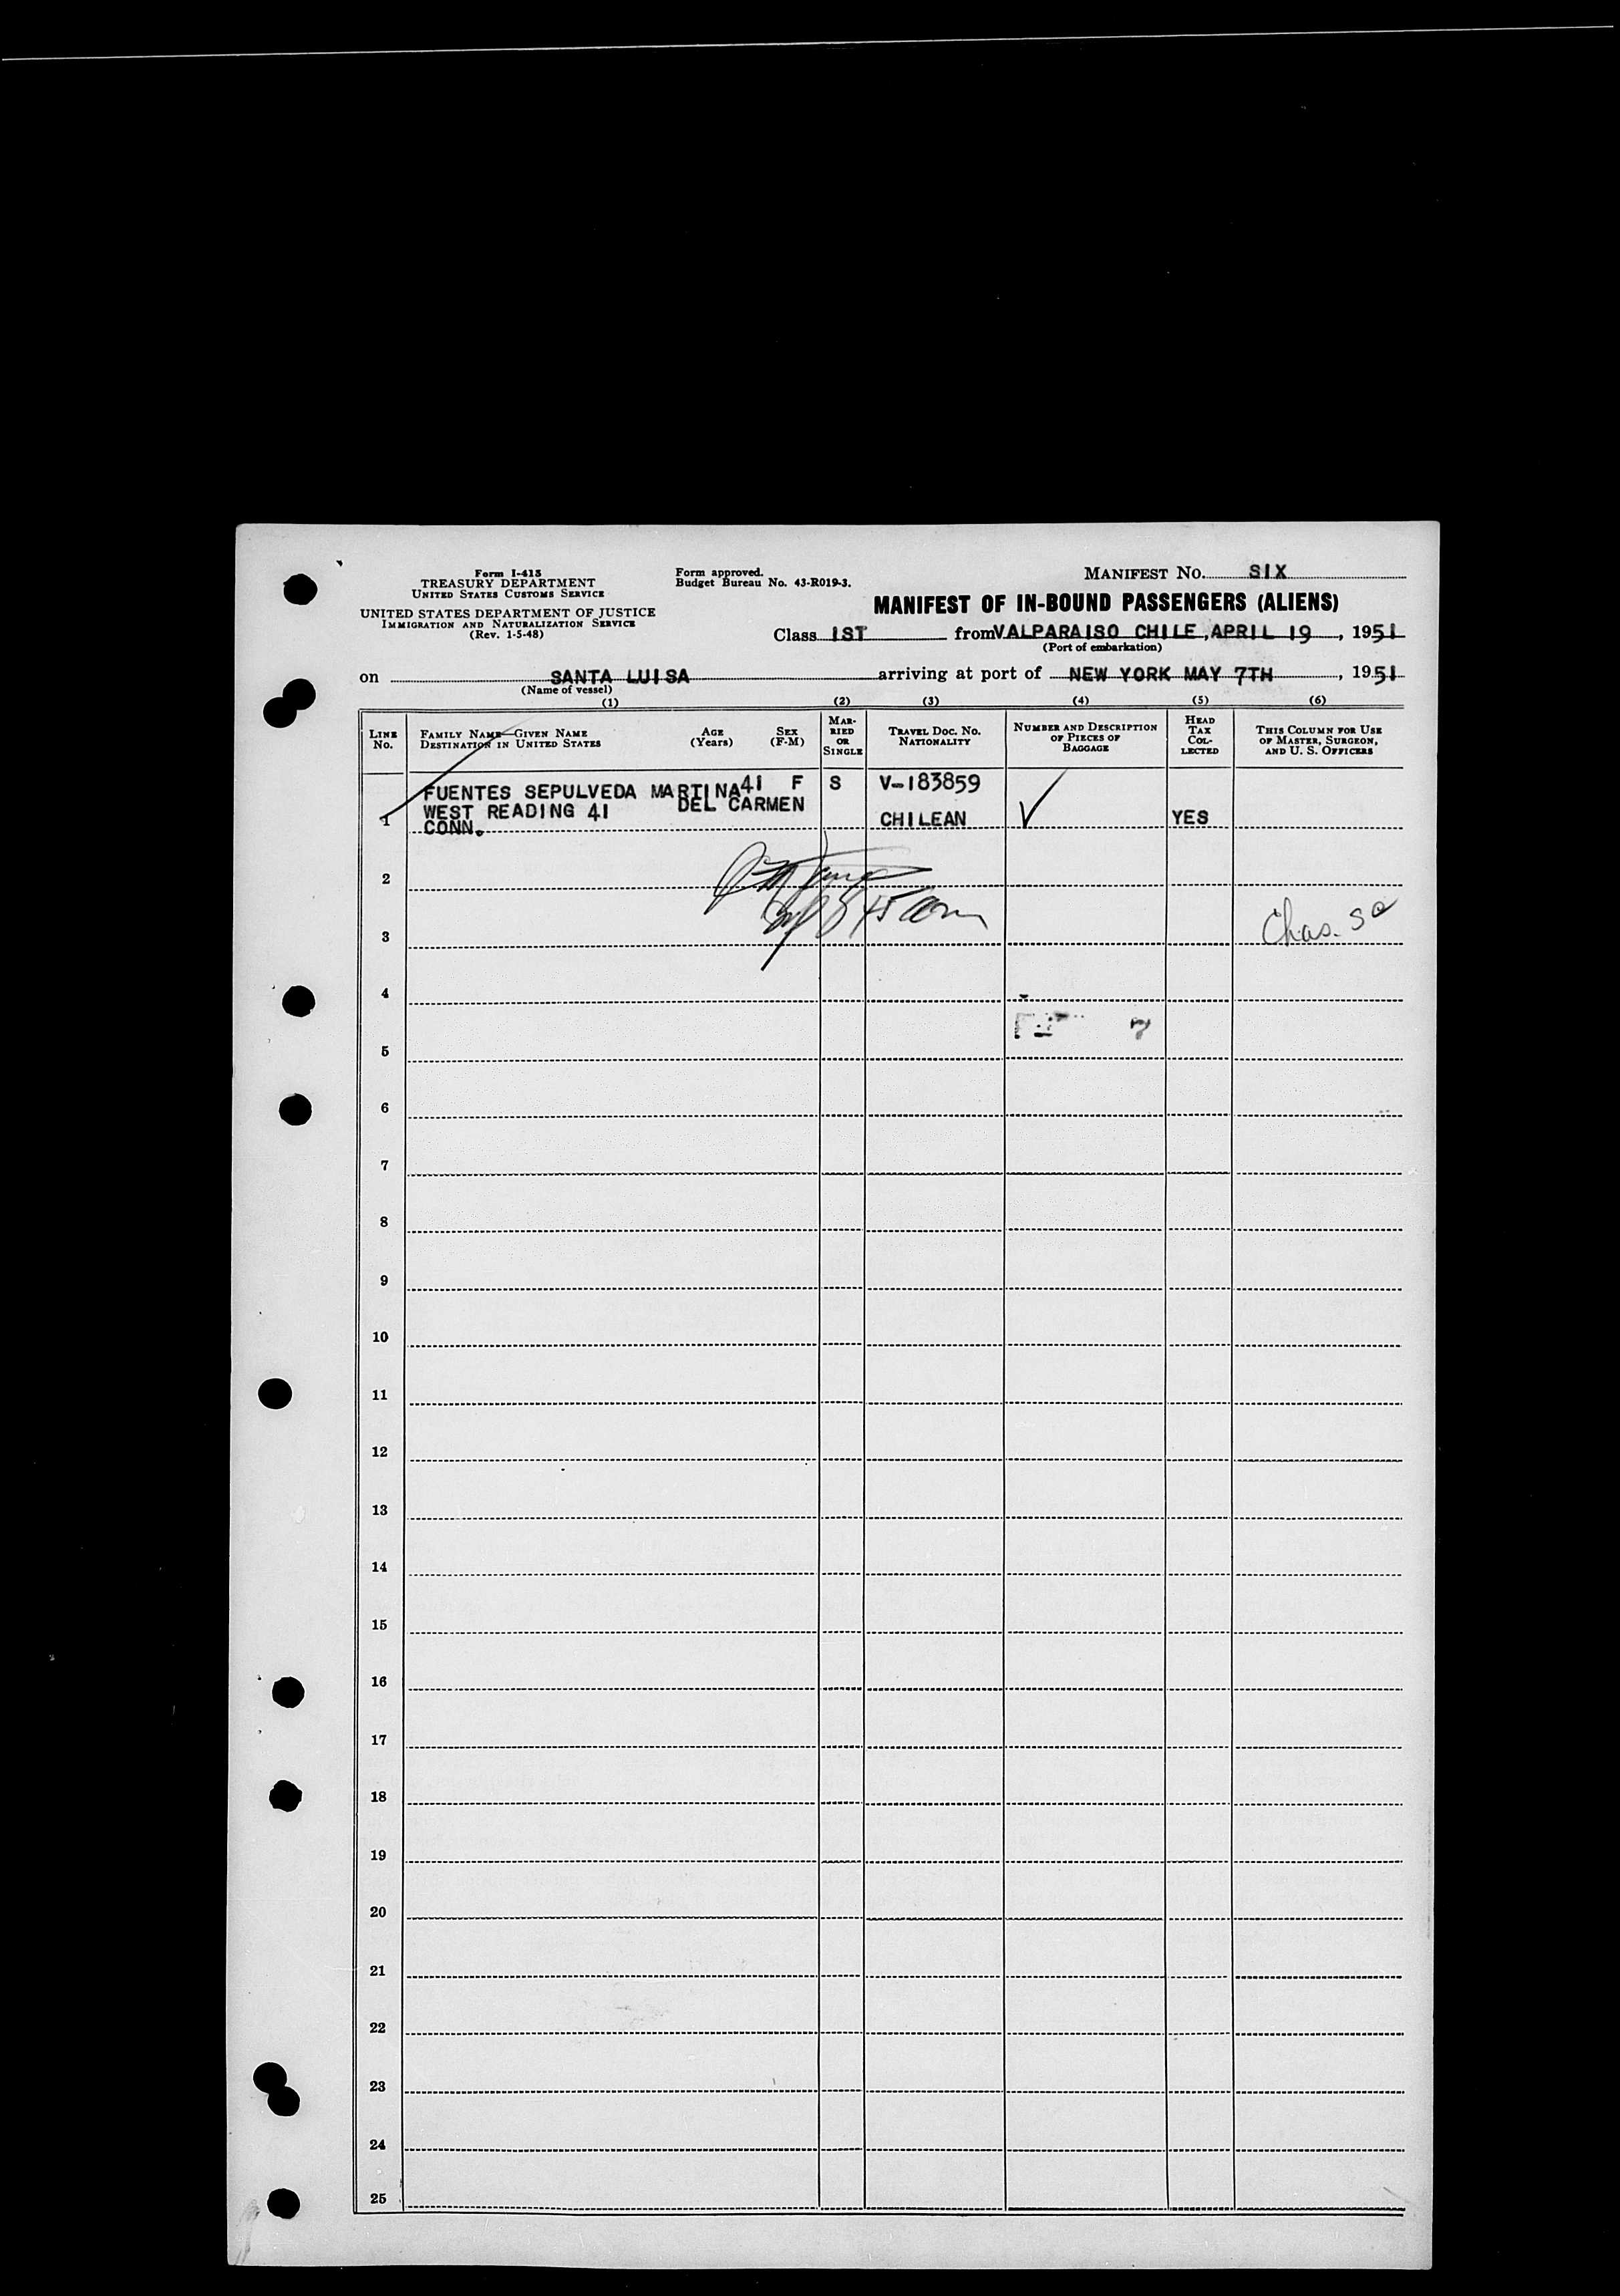 Form I-415
TREASURY DEPARTMENT
UNITED STATES CUSTOMS SERVICE
UNITED STATES DEPARTMENT OF JUSTICE
IMMIGRATION AND NATURALIZATION SERVICE
(Rev. 1-5-48)
Form approved.
Budget Bureau No. 43-R019-3.
MANIFEST NO. SIX
MANIFEST OF IN-BOUND PASSENGERS (ALIENS)
Class 1ST from VALPARAISO CHILE, APRIL 19, 1951
(Port of embarkation)
on SANTA LUISA arriving at port of NEW YORK MAY 7TH, 1951
(Name of vessel)
(1) (2) (3) (4) (5) (6)
LINE NO.
FAMILY NAME—GIVEN NAME
DESTINATION IN UNITED STATES
AGE (Years)
SEX (F-M)
MARRIED OR SINGLE
TRAVEL DOC. NO.
NATIONALITY
NUMBER AND DESCRIPTION OF PIECES OF BAGGAGE
HEAD TAX COLLECTED
THIS COLUMN FOR USE OF MASTER, SURGEON, AND U. S. OFFICERS
FUENTES SEPULVEDA MARTINA 41 F S V-183859
WEST READING 41 DEL CARMEN
1 CONN. CHILEAN YES
2
45 am
3 Chas.
4
5
6
7
8
9
10
11
12
13
14
15
16
17
18
19
20
21
22
23
24
25